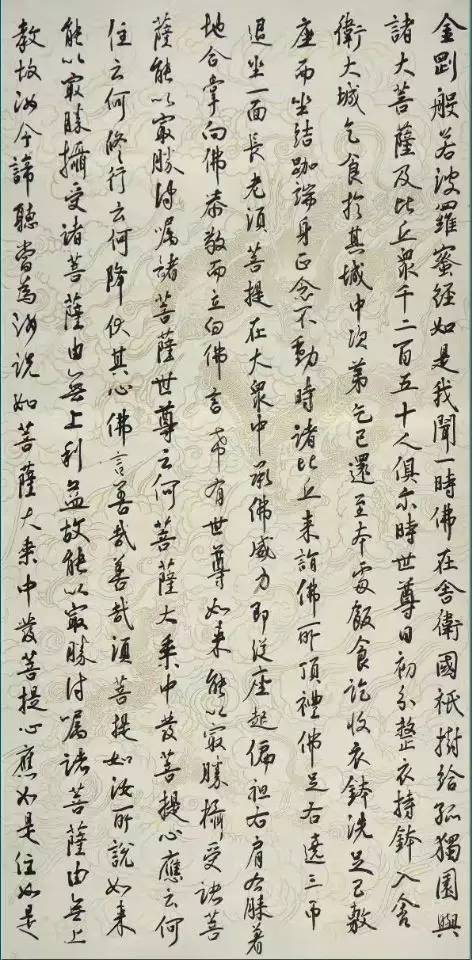 金剛般若波羅蜜經如是我聞一時佛在舍衛國祇樹給孤獨園與
諸大菩薩及比丘眾千二百五十人俱尒時世尊日初分整衣持鉢入舍
衛大城乞食於其城中次第乞已還至本處飯食訖收衣鉢洗足已敷
座而坐結跏端身正念不動時諸比丘来詣佛所頂禮佛足右遶三帀
退坐一面長老須菩提在大眾中承佛威力即從座起偏袒右肩右膝着
地合掌向佛恭敬而立白佛言希有世尊如来能以最勝攝受諸菩
薩能以最勝付囑諸菩薩世尊云何菩薩大乘中發菩提心應云何
住云何修行云何降伏其心佛言善哉善哉須菩提如汝所說如来
能以最勝攝受諸菩薩由無上利益故能以最勝付囑諸菩薩由無上
教故汝今諦聽當為汝說如菩薩大乘中發菩提心應如是住如是